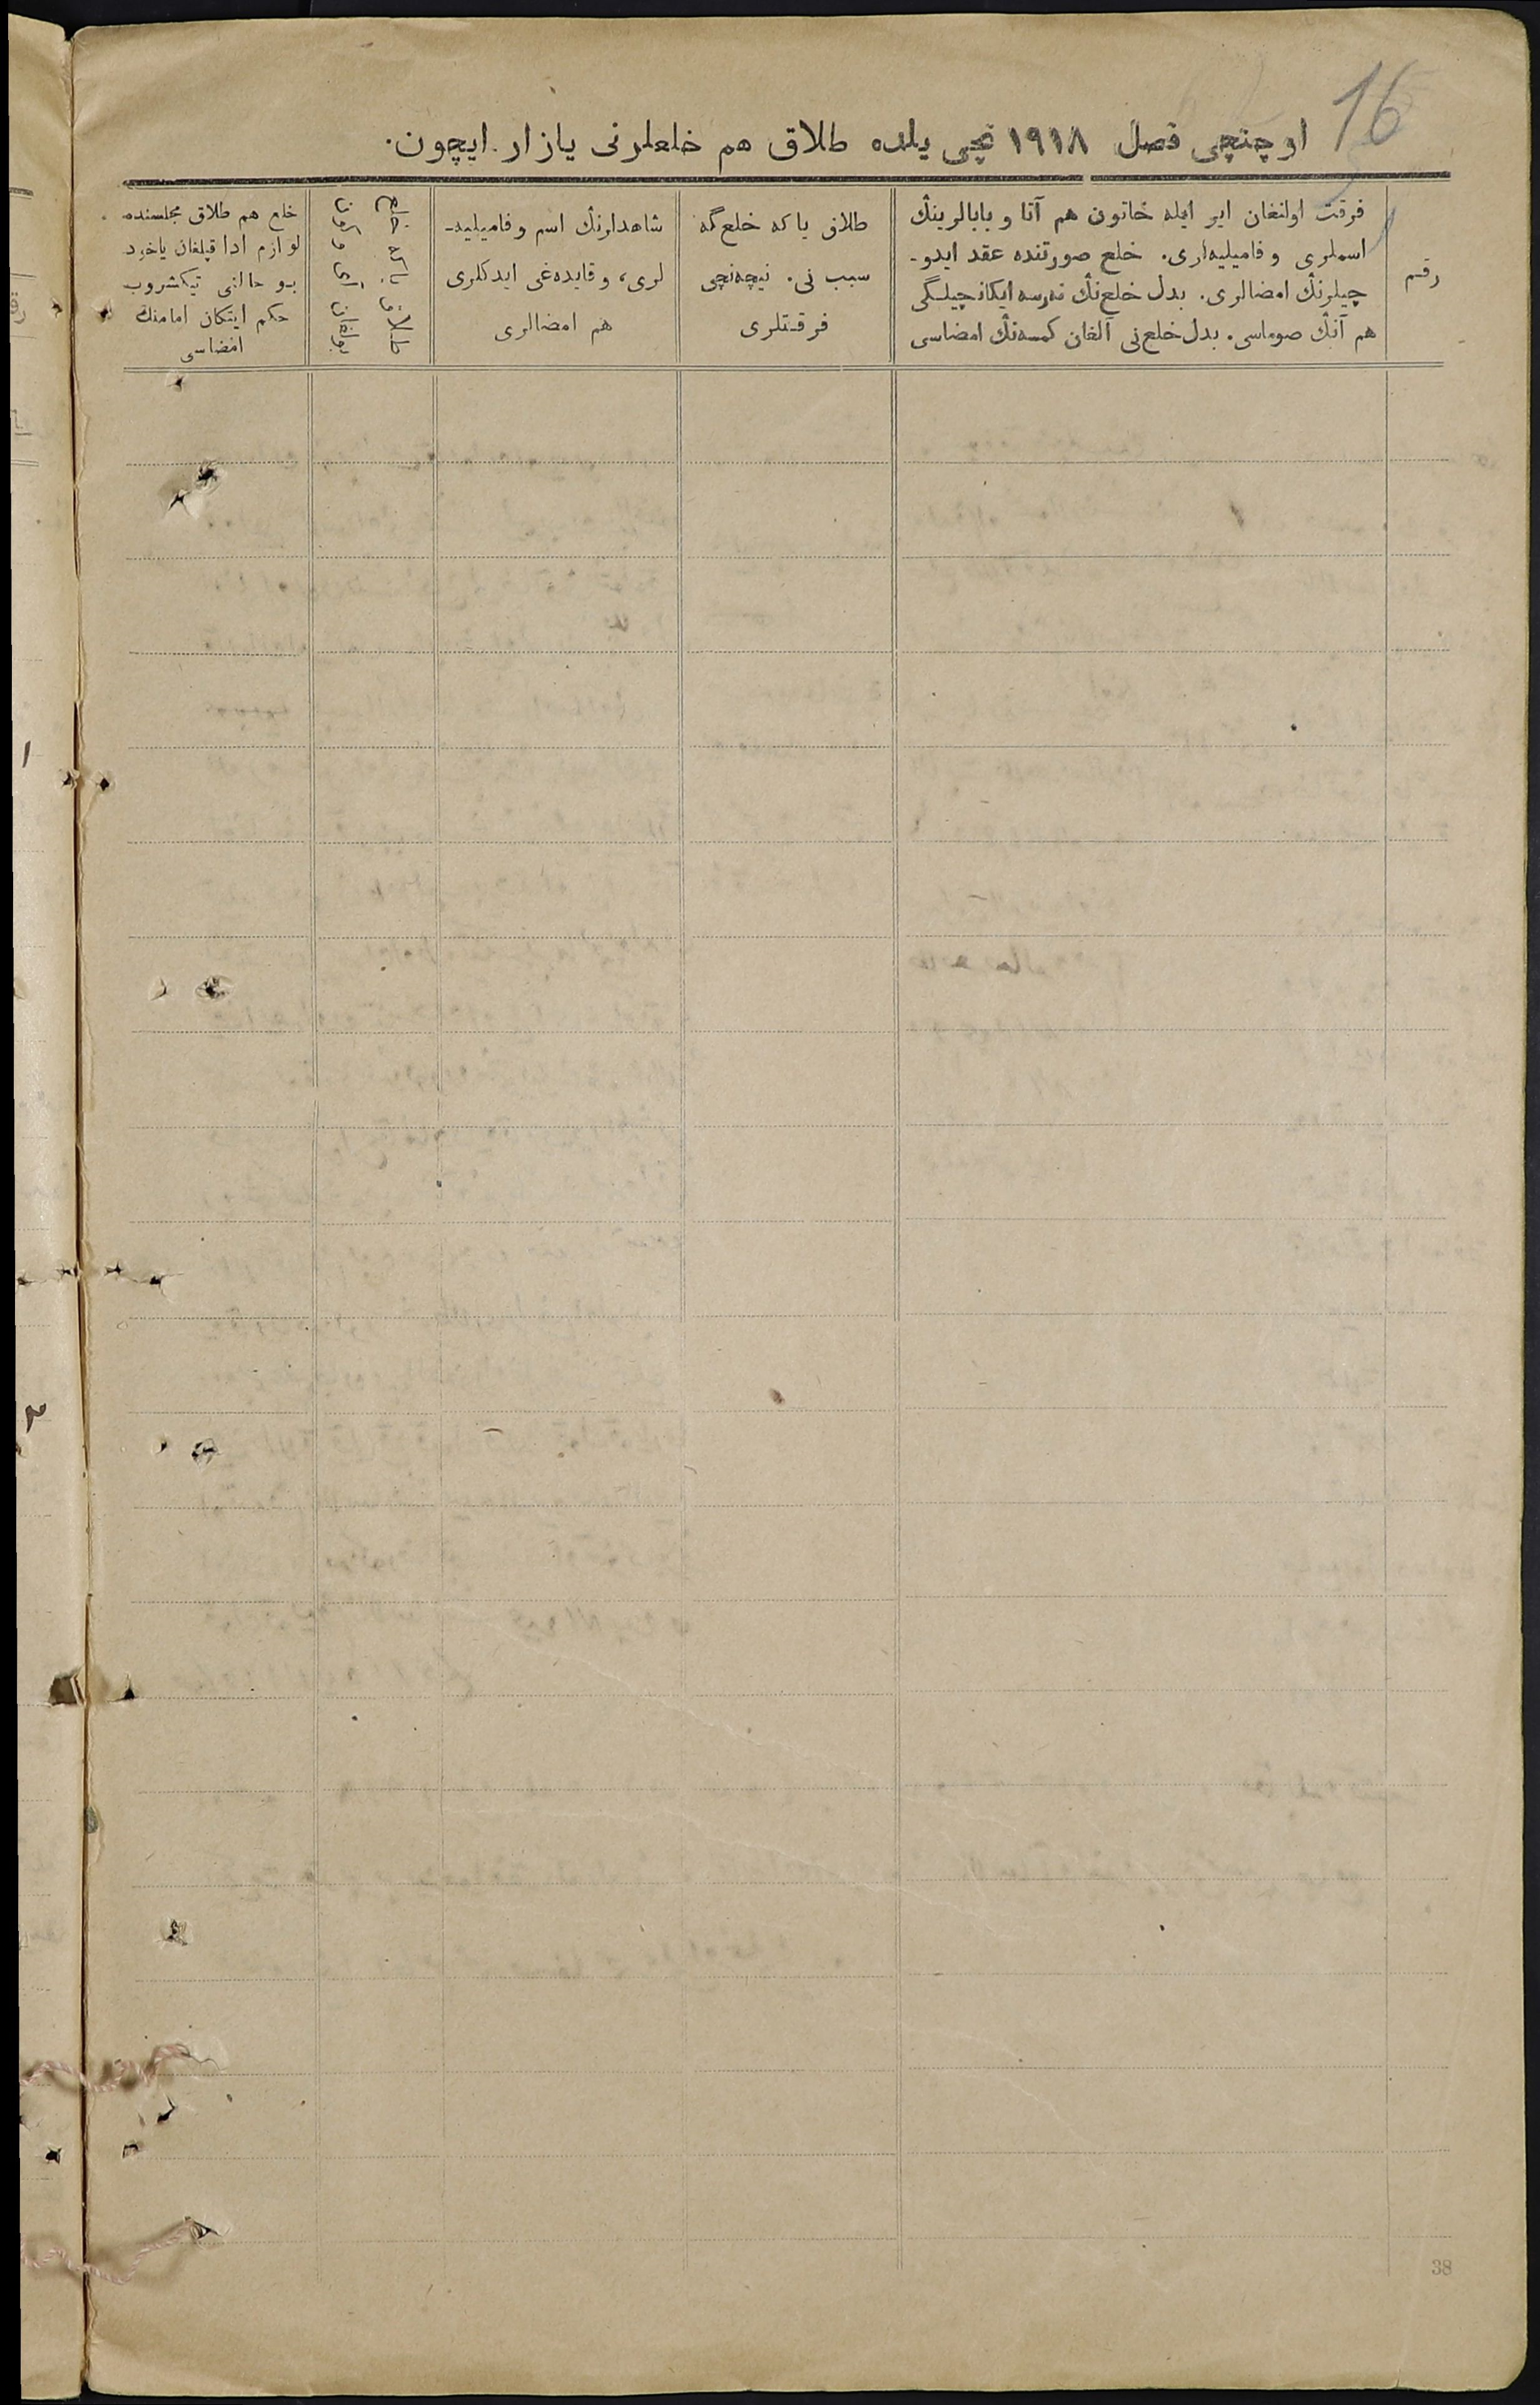 16
اوچنچی فصل ۱۹۱۸ نچی یلده طلاق هم خلعلرنی یازار ایچون.
رقم
فرقت اولنغان ایر ایله خاتون هم آتا و بابالرینڭ
اسملری و فامیلیه‌لری. خلع صورتنده عقد ایدو-
چیلرنڭ امضالری. بدل خلع‌نڭ نه‌رسه ایکانچیلـگی
هم آنڭ صوماسی. بدل خلع‌نی آلغان کمسه‌نڭ امضاسی
طلاق یا که خلع گه
سبب نی. نیچه‌نچی
فرقـتلری
شاهدلرنڭ اسم و فامیلیه-
لری، و قایده‌غی ایدکلری
هم امضالری
طلاق یا که خلع
بولغان آی و کون
خلع هم طلاق مجلسنده
لوازم ادا قیلغان یاخود
بـو حالنی تیکشروب
حکم ایتکان امامنڭ
امضاسی
38